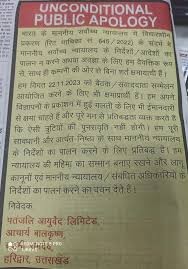 UNCONDITIONAL
PUBLIC APOLOGY
भारत के माननीय सर्वोच्च न्यायालय में विचाराधीन
प्रकरण (रिट याचिका सं. 645 / 2022) के संदर्भ में
माननीय सर्वोच्च न्यायालय के निर्देशों/आदेशों का
पालन न करने अथवा अवज्ञा के लिए हम वैयक्तिक रूप
से, साथ ही कम्पनी की ओर से बिना शर्त क्षमायाची हैं।
हम विगत 22.11.2023 को बैठक / संवाददाता सम्मेलन
आयोजित करने के लिए भी क्षमाप्रार्थी हैं। हम अपने
विज्ञापनों के प्रकाशन में हुई गलती के लिए भी ईमानदारी
से क्षमा चाहते हैं और पूरे मन से प्रतिबद्धता व्यक्त करते हैं
कि ऐसी त्रुटियों की पुनरावृत्ति नहीं होगी। हम पूरी
सावधानी और अत्यंत निष्ठा के साथ माननीय न्यायालय
के निर्देशों का पालन करने के लिए प्रतिबद्ध हैं। हम
न्यायालय की महिमा का सम्मान बनाए रखने और लागू
कानूनों एवं माननीय न्यायालय / संबंधित अधिकारियों के
निर्देशों का पालन करने का वचन देते हैं।
निवेदक
पतंजलि आयुर्वेद लिमिटेड,
आचार्य बालकृष्ण,
हरिद्वार, उत्तराखंड